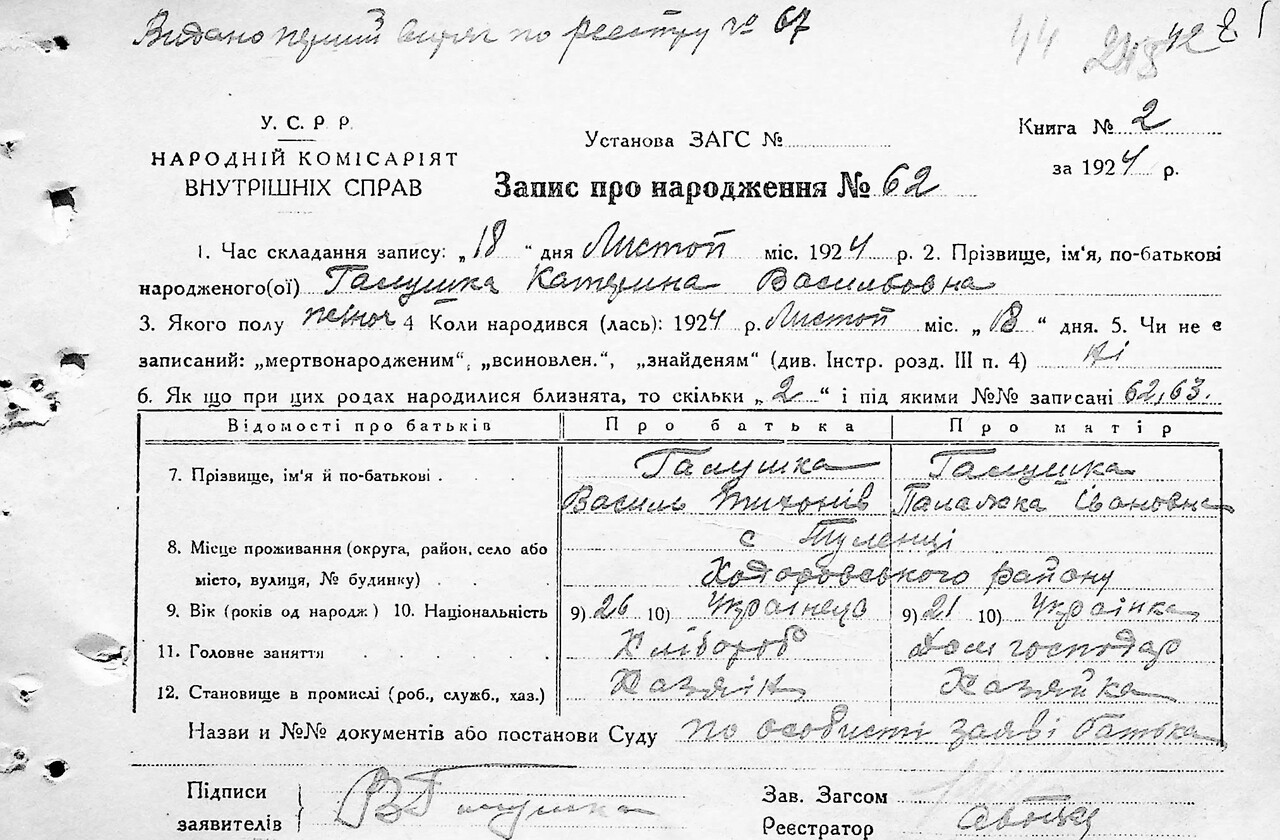 Видано перший витяг по реєстру № 67
44 42
У. С. Р. Р.
НАРОДНІЙ КОМІСАРІЯТ
ВНУТРІШНІХ СПРАВ
Установа ЗАГС №
Книга № 2
за 1924 р.
Запис про народження № 62
1. Час складання запису: „ 18 “ дня Листоп міс. 1924 р. 2. Прізвище, ім'я, по-батькові
народженого(ої) Галушка Катерина Васильовна
3. Якого полу жіноч 4 Коли народився (лась): 1924 р. Листоп міс. „ 13 “ дня. 5. Чи не є
записаний: „мертвонародженим“, „всиновлен.“, „знайденям“ (див. Інстр. розд. III п. 4) Ні
6. Як що при цих родах народилися близнята, то скільки „ 2 “ і під якими №№ записані 62, 63.
Відомості про батьків Про батька Про матір
7. Прізвище, ім'я й по-батькові . Галушка Галушка
Василь Тихонів Палажка Івановна
8. Місце проживання (округа, район, село або с Туленці
місто, вулиця, № будинку) . . . Ходоровського району
9. Вік (років од народж) 10. Національність 9) 26 10) Українець 9) 21 10) Українка
11. Головне заняття . . . . . Хлібороб Дом господар
12. Становище в промислі (роб., служб., хаз.) Хазяїн Хазяйка
Назви и №№ документів або постанови Суду по особисті заяві батька
Підписи
заявителів ВГалушка
Зав. Загсом
Реєстратор